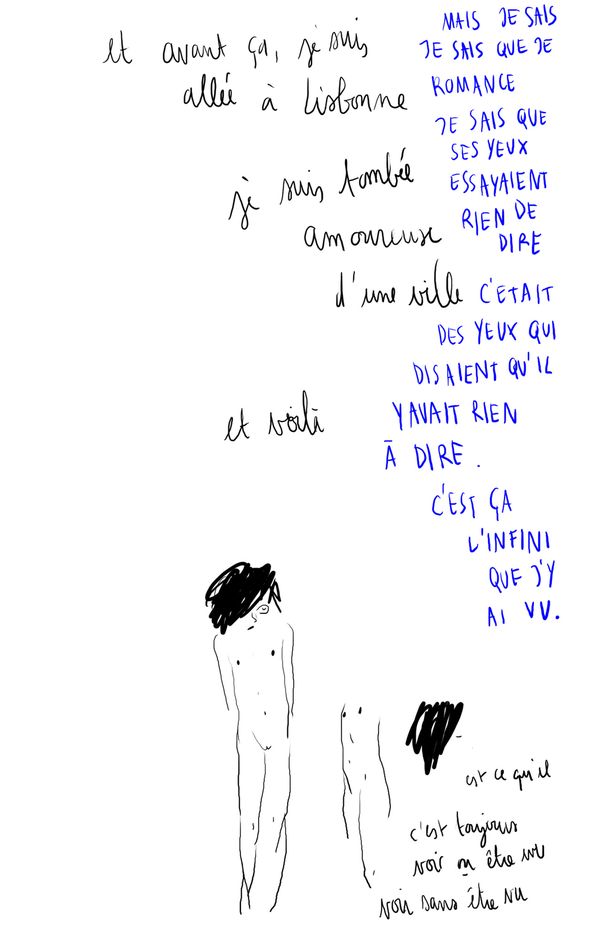 et avant ça, je suis
allée à Lisbonne
je suis tombée
amoureuse
d'une ville
et voilà
MAIS JE SAIS
JE SAIS QUE JE
ROMANCE
JE SAIS QUE
SES YEUX
ESSAYAIENT
RIEN DE
DIRE
C'ETAIT
DES YEUX QUI
DISAIENT QU'IL
YAVAIT RIEN
À DIRE.
C'EST ÇA
L'INFINI
QUE J'Y
AI VU.
est ce qu'il
c'est toujours
voir ou être vu
voir sans être vu